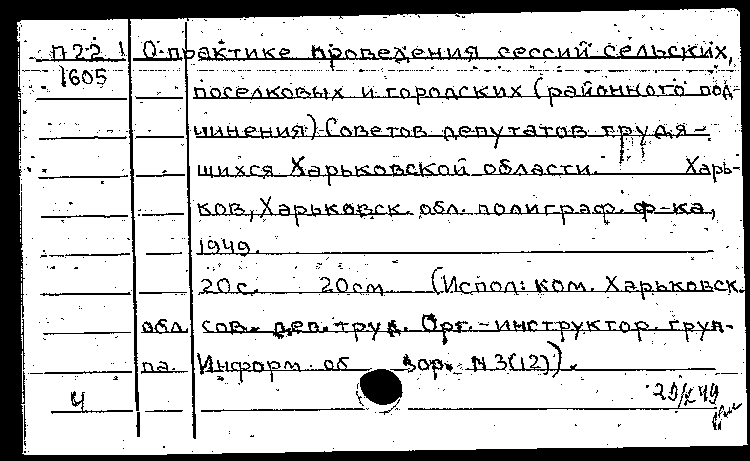 П22 1 О практике проведения сессий сельских,
1605
поселковых и городских (районного под-
чинения) Советов депутатов трудя-
щихся Харьковской области. Харь-
ков, Харьковск. обл. полиграф. ф-ка,
1949.
20 с. 20см (Испол: ком. Харьковск.
обл. сов. деп. труд. Орг.-инструктор. груп-
па. Информ. об зор. N 3(12)).
Ч